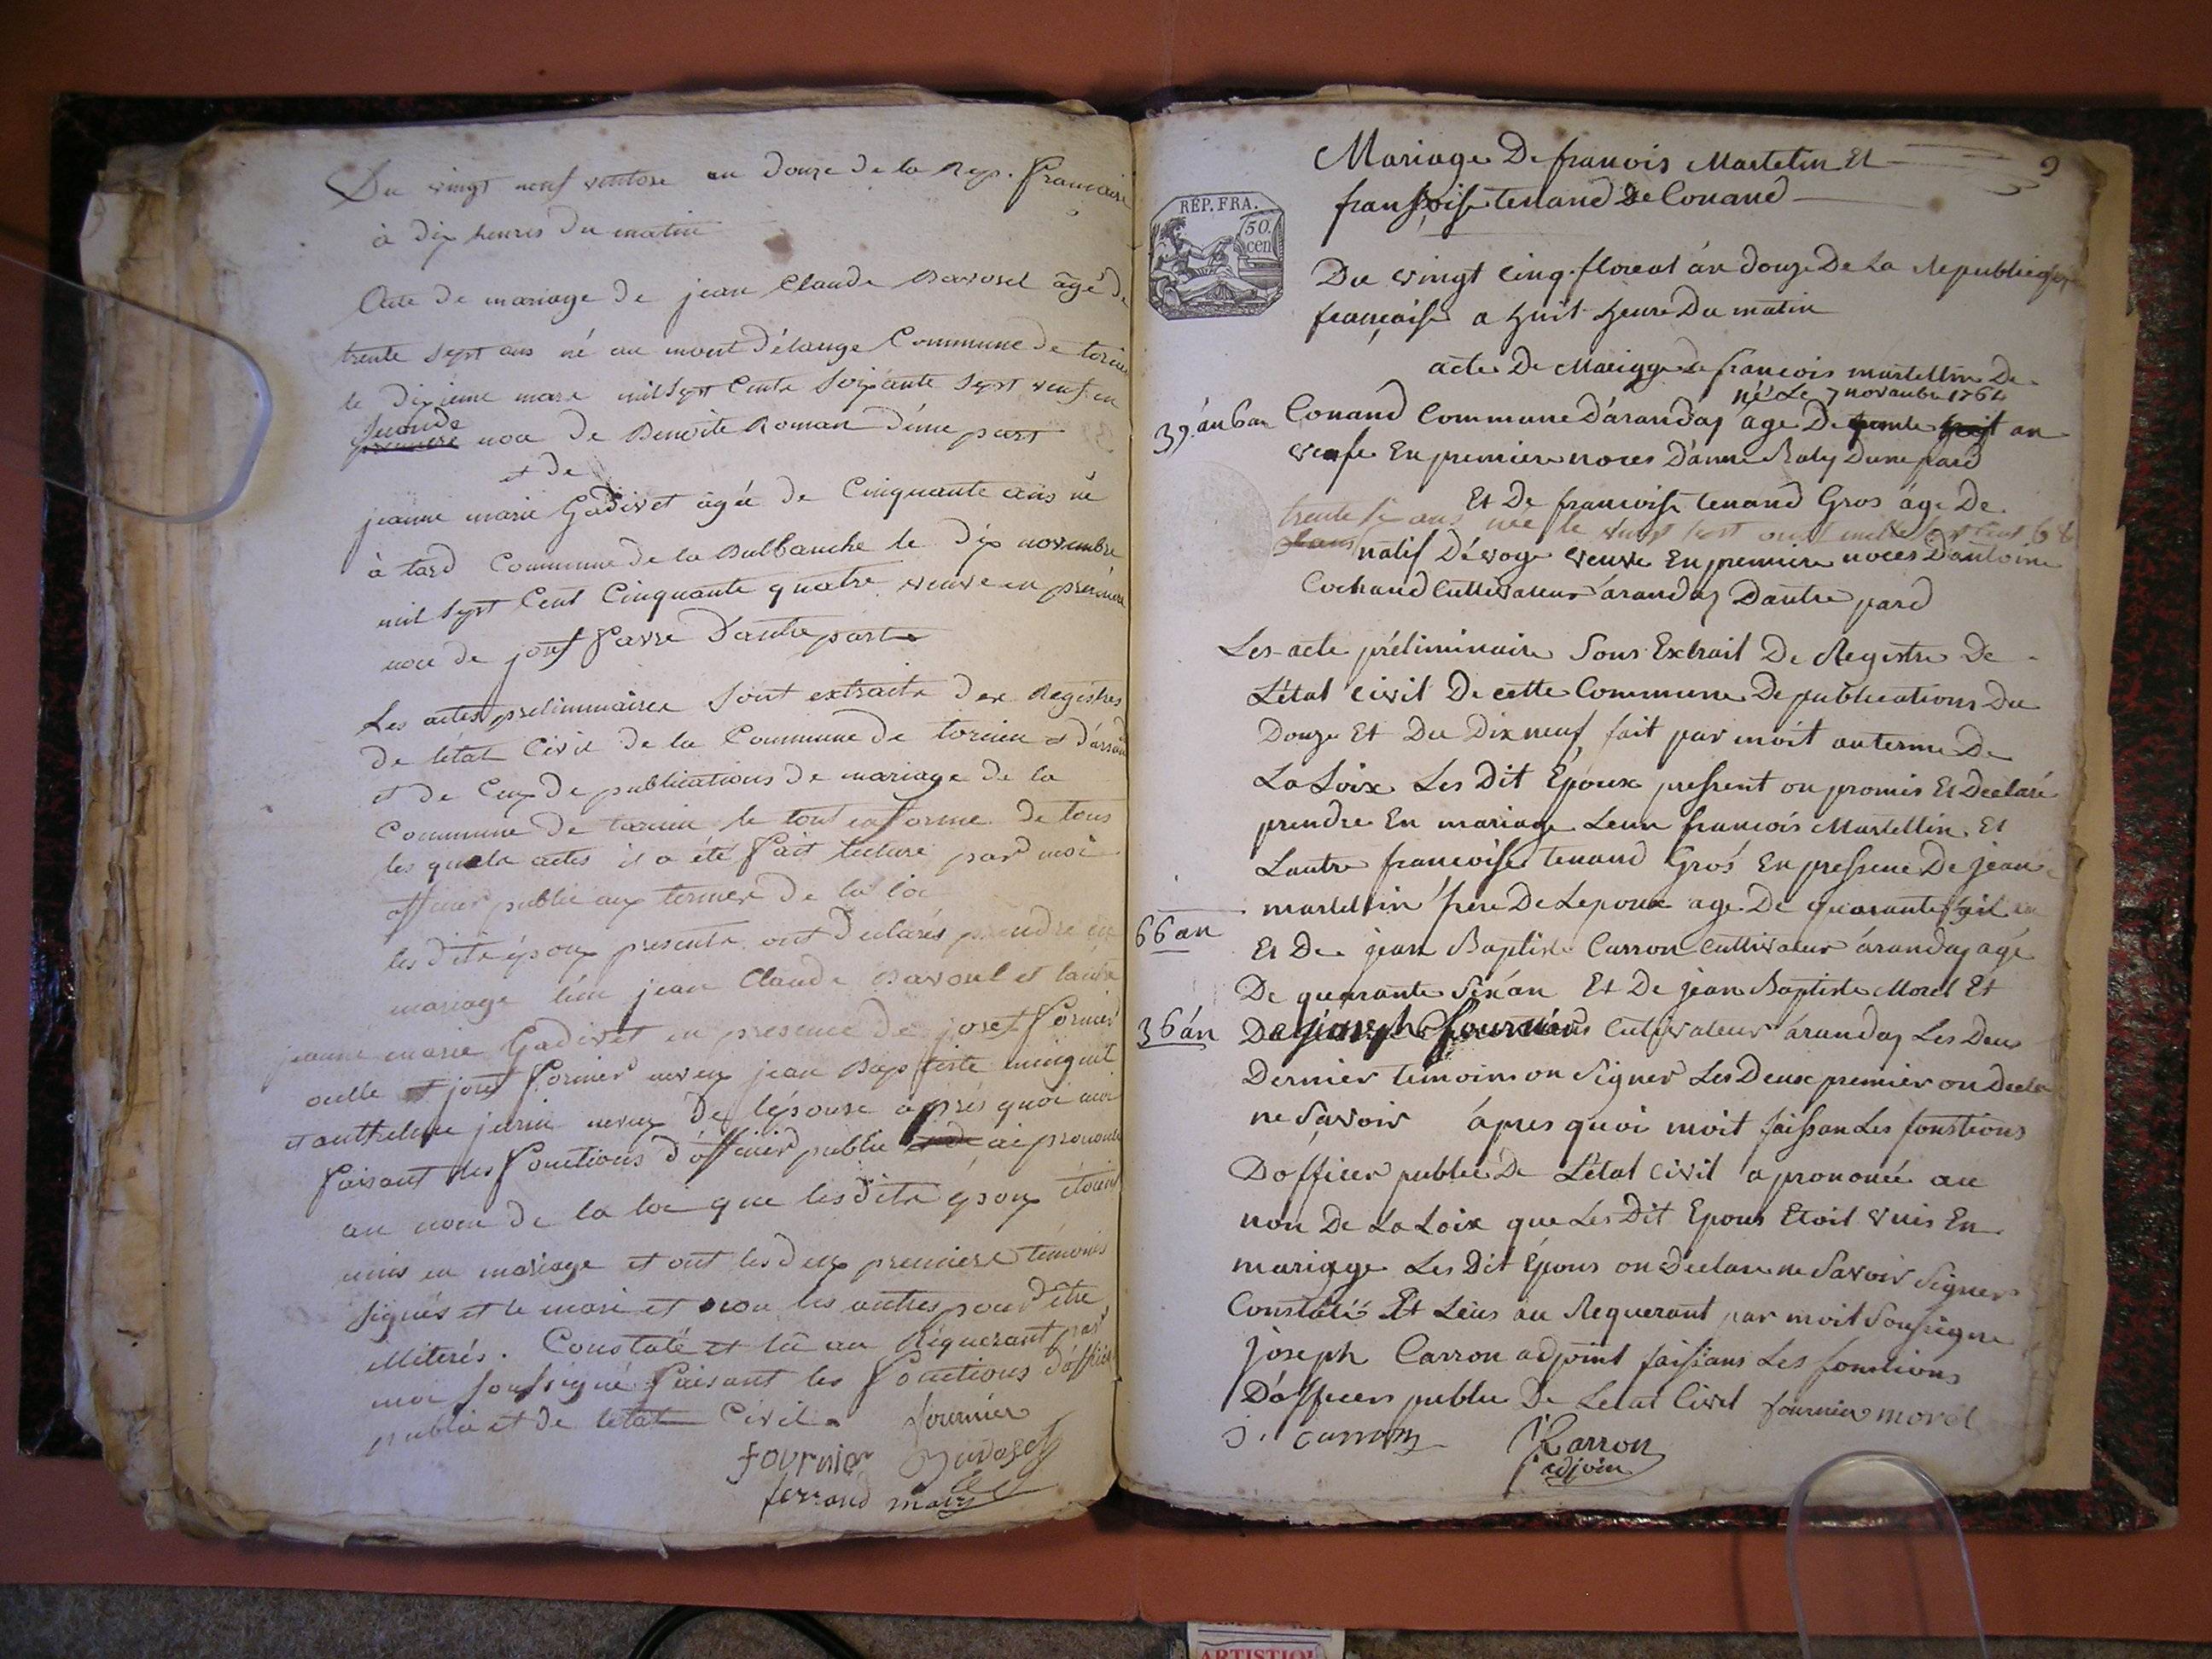 Du vingt neuf ventose an douze de la Rep. francaise
à dix heures du matin
Acte de mariage de jean Claude Bavosel âgé de
trente sept ans né au mont délange Commune de torcieu
le dixieme mars mil sept Cents soixante sept veuf en
seconde
premiere noce de Benoite Roman d'une part
et de
jeanne marie Gadivet agée de Cinquante ans né
à tard Commune de la Balbanche le dix novembre
mil sept Cent Cinquante quatre veuve en premiere
noce de josef favre d'autre part
Les actes preliminaires sont extraits des Registres
de l'état Civil de la Commune de torcieu et d'
et de Ceux de publications de mariage de la
Commune de torcieu le tout en forme de tous
les quels actes il a été fait lecture par moi
officier public aux termes de la loi
les dits époux presents ont déclarés prendre en
mariage l'un jean Claude Bavosel et l'autre
jeanne marie Gadivet en presence de josef fornier
et josef fornier neveu jean Baptiste
et anthelme neveu De l'épouse après quoi moi
faisant les fonctions d'officier public ai prononcé
au nom de la loi que les dits époux étoient
unis en mariage et ont les deux premiers temoins
signés et le mari et non les autres pour être
illiterés. Constaté et lû au Réquerant par
moi soussigné faisant les fonctions d'officier
public et de l'état Civil. fournier
fournier Bavosel
ferrand maire
9
Mariage De franois Martelin Et
fransoise tenand De Conand
REP. FRA.
50.
cen
Du vingt cinq floreal án douze De La Republique
française a huit heure Du matin
acte De Mariage de francois martellin De
né Le 7 novanbre 1764
39. án 6 m Conand Commune D'áranday áge De trente huit an
veufe En premiere noces D'anne Roly D'une pard
Et De francoise tenand Gros áge De
trente six ans née le vingt sept aout mille sept cent 68
natif D'évoge veuve En premiere noces D'antoine
Cochand Cultivateur áranday D'autre pard
Les acte préliminaire Sons Extrait De Registre De
L'état Civil De cette Commune De publications Du
Douze Et Du Dix neuf fait par moit au terme De
La Loix Les Dit Époux pressent on promis Et Declaré
prendre En mariage Leun francois Martellin Et
Lautre francoise tenand Gros En pressence De jean
martellin frere De Lepoux age De quarante huit an
66 an
Et De jean Baptiste Carron Cultivateur áranday agé
De quarante Six án Et De jean Baptiste Morel Et
36 án De joseph fournier Cultivateur áranday Les Deus
Dernier temoins on Signer Les Deux premier on Declare
ne Savoir ápres quoi moit faissan Les fonstions
D'officer public De L'état Civil a prononcé au
non De La Loix que Les Dit Epous Etoit Unis En
mariage Les Dit Épous on Declare ne Savoir Signer
Constaté Et Leus au Requerant par moit Sousigne
joseph Carron adjoint faissans Les fonstions
D'officers public De Letat Civil fournier morel
J. carron J Carron
adjoin
ARTISTIQU